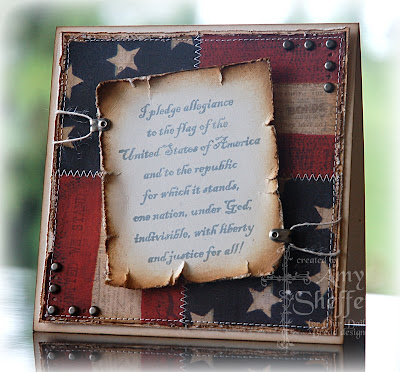 I pledge allegiance
to the flag of the
United States of America
and to the republic
for which it stands,
one nation, under God,
indivisible, with liberty
and justice for all!
created by
my
Sheffe